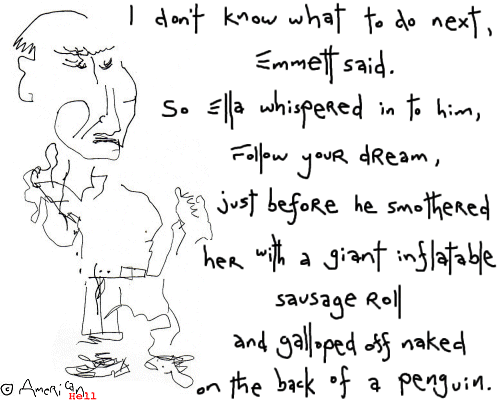 I don't know what to do next,
Emmett said.
So Ella whispered in to him,
Follow your dream,
just before he smothered
her with a giant inflatable
sausage roll
and galloped off naked
on the back of a penguin.
© American
Hell